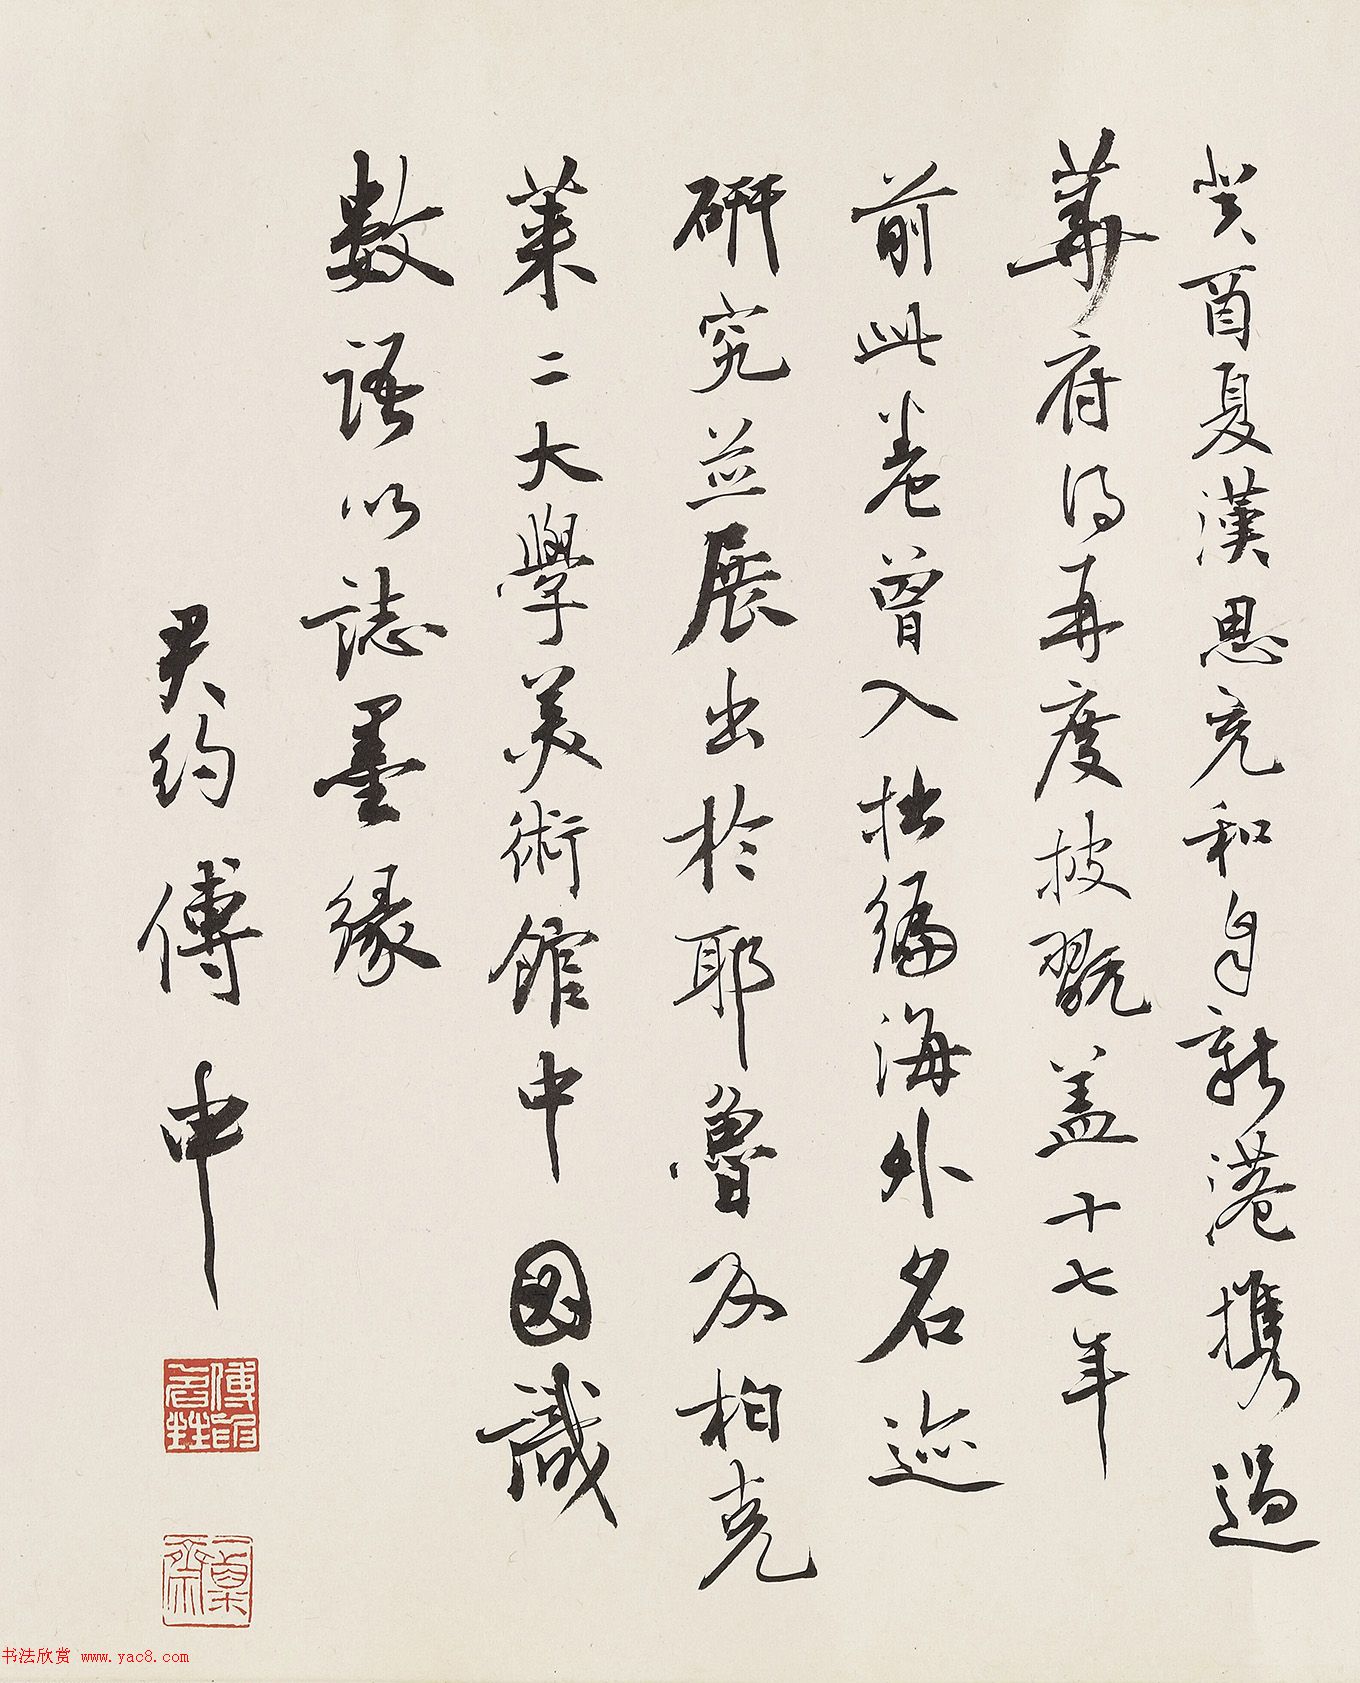 癸酉夏漢思充和自新港携過
華府得再度披翫蓋十七年
前此卷曾入拙編海外名迹
研究並展出於耶魯及柏克
萊二大學美術館中因識
數語以誌墨緣
君約傅申
傅申
书法欣赏 www.yac8.com